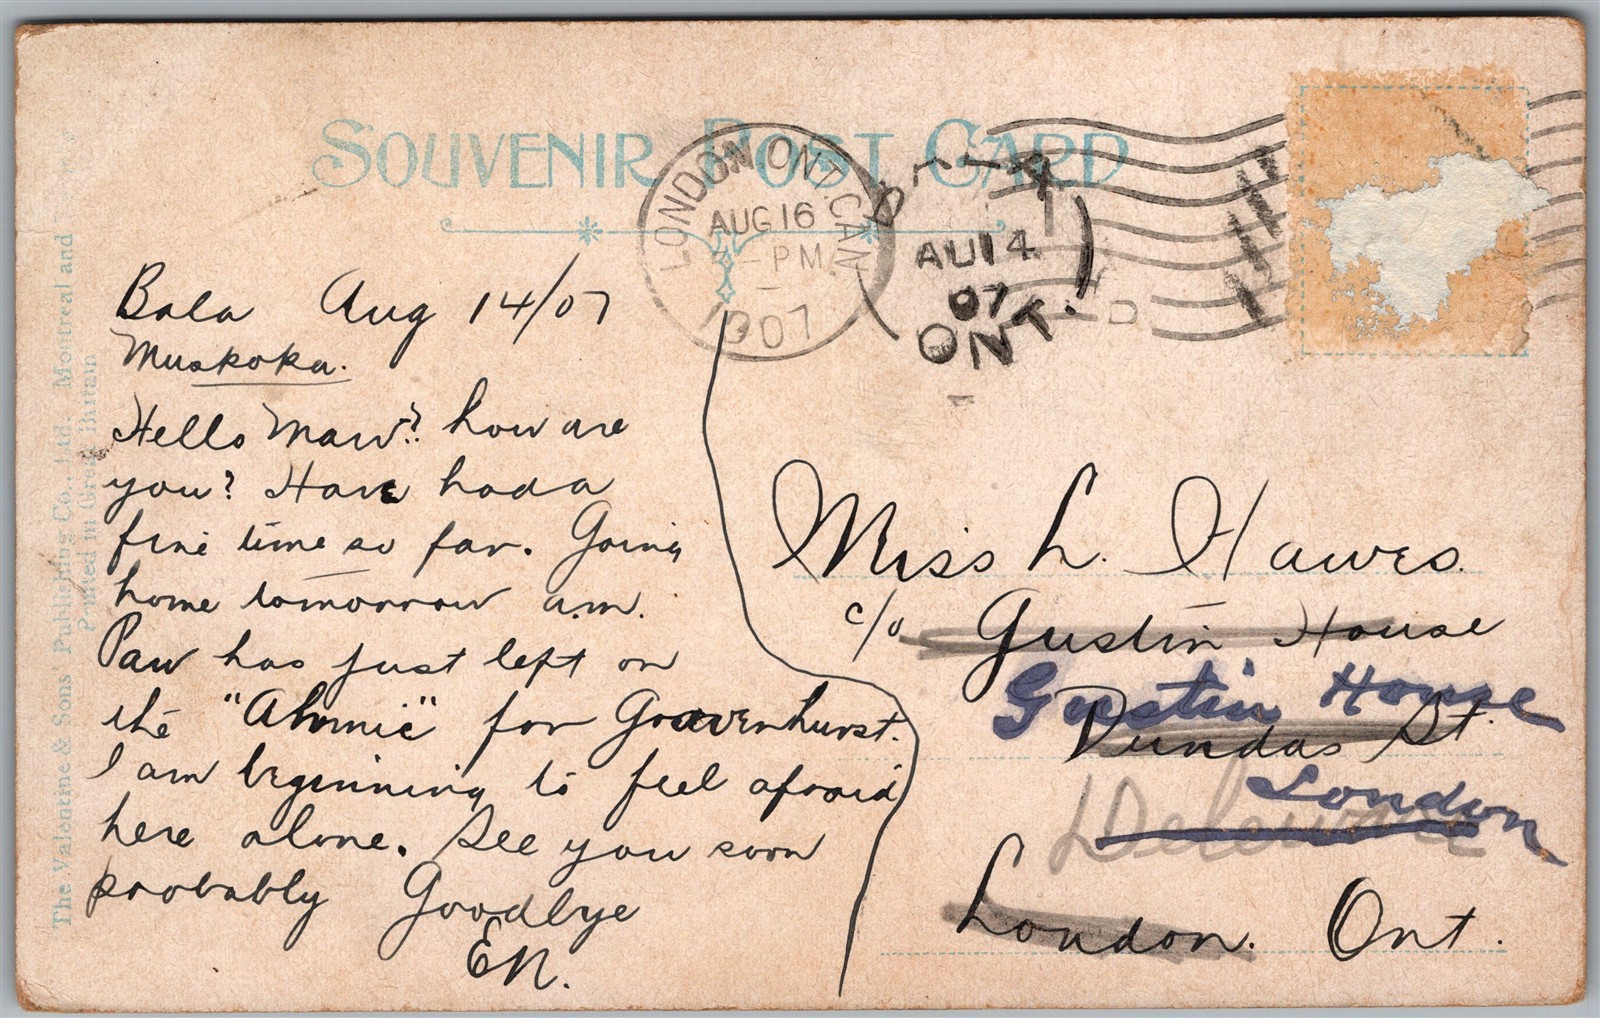 SOUVENIR POST CARD
LONDON ONT. CAN
AUG 16
PM
1907
AU 14
07
ONT.
Bala Aug 14/07
Muskoka.
Hello Maw? how are
you? Have had a
fine time so far. Going
home tomorrow a.m.
Paw has just left on
the "Ahmic" for Gravenhurst.
I am beginning to feel afraid
here alone. See you soon
probably Goodbye
EN.
Miss L. Hawes.
c/o Gustin House
Gustin House
Dundas St.
London
Delaware
London. Ont.
The Valentine & Sons Publishing Co., Ltd. Montreal and
Printed in Great Britain